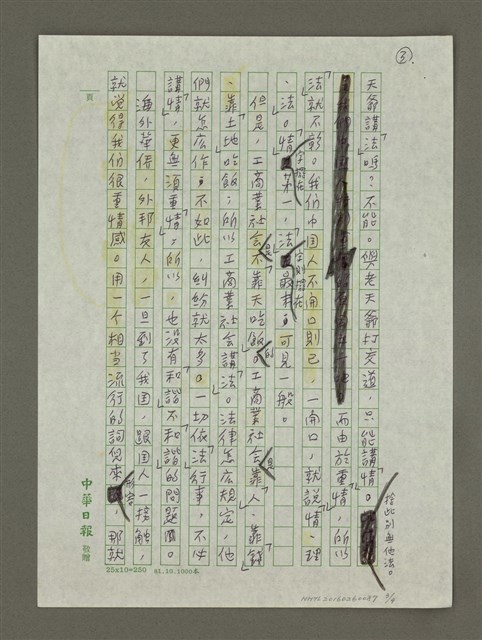 ③.
天爺講法嗎?不能。與老天爺打交道,只能講「情」。捨此別無他法。
而由於重「情」,所以
「法」就不彰。我們中国人不開口則已,一開口,就説「情、理
、法」。「情」字擺在第一,「法」字則擺在最末,可見一般。
但是,工商業社会是不靠天吃飯的。工商業社会是靠「人」、靠「錢」
、靠「土地」吃飯,所以工商業社会講「法」。法律怎広規定,他
們就怎広作,不如此,糾紛就太多。一切依「法」行事,不必
講「情」,更無須重「情」。所以,也没有「和諧」不「和諧」的問題。
海外華僑,外邦友人,一旦到了我国,跟国人一接触,
就説得我们很重情感。用一个相当流行的詞児來形容,那就
頁
中華日報 敬贈
25x10=250 81.10.1000本
NMTL20160260087 3/4